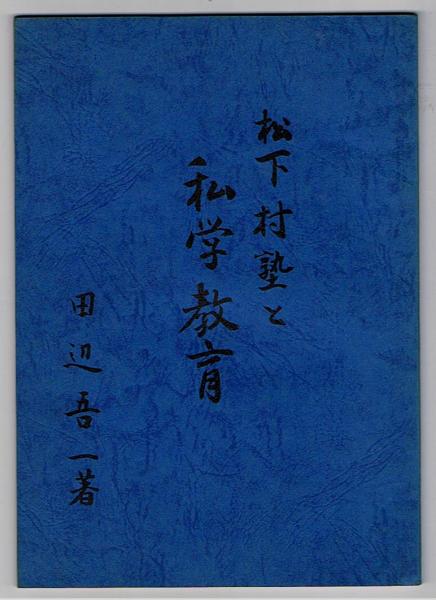 松下村塾と
私学教育
田辺吾一著